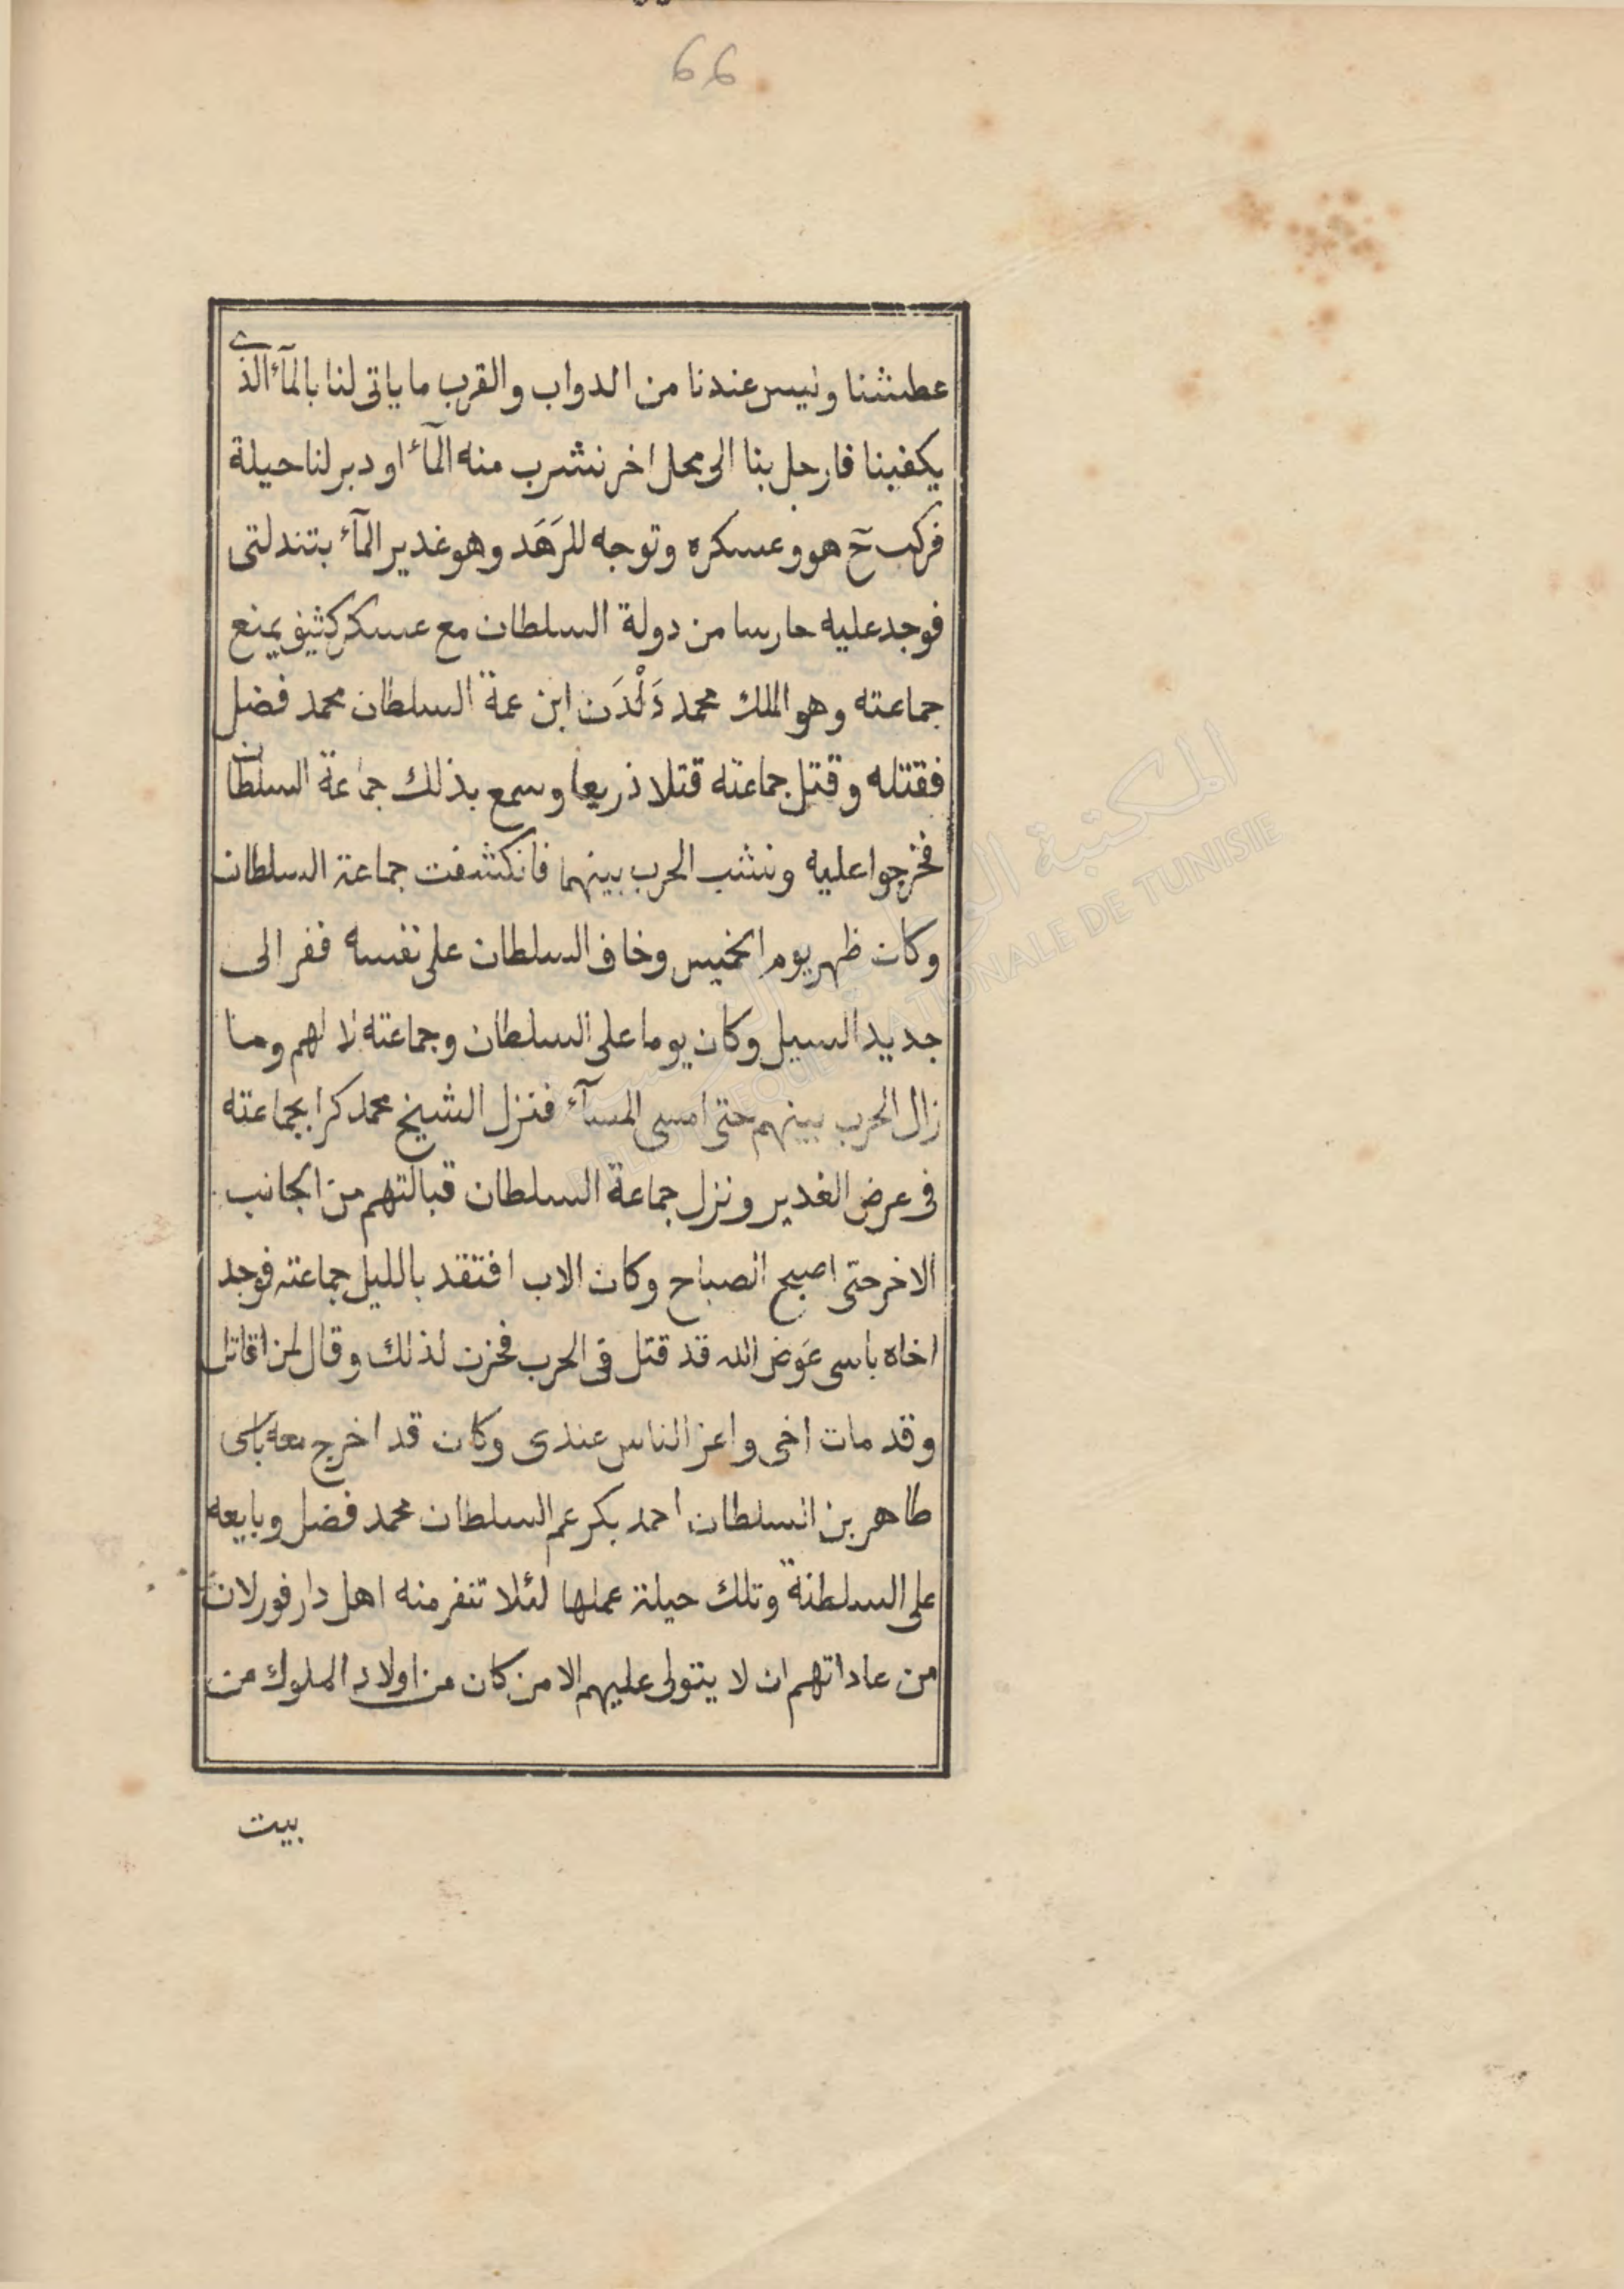 66
عطشنا وليس عندنا من الدواب والقرب ما ياتى لنا بالمآء الذى
يكفينا فارحل بنا الى محل اخر نشرب منه المآء او دبر لنا حيلة
فركب ح هو وعسكره وتوجه للرَهَد وهو غدير المآء بتندلتى
فوجد عليه حارسا من دولة السلطان مع عسكر كثيف يمنع
جماعته وهو الملك محمد دَلْدَن ابن عمة السلطان محمد فضل
فقتله وقتل جماعته قتلا ذريعا وسمع بذلك جماعة السلطان
فخرجوا عليه ونشب الحرب بينهما فانكشفت جماعة السلطان
وكان ظهر يوم الخميس وخاف السلطان على نفسه ففر الى
جديد السيل وكان يوما على السلطان وجماعته لا لهم وما
زال الحرب بينهم حتى امسى المسآء فنزل الشيخ محمد كرا بجماعته
فى عرض الغدير ونزل جماعة السلطان قبالتهم من الجانب
الاخر حتى اصبح الصباح وكان الاب افتقد بالليل جماعته فوجد
اخاه باسى عَوَض الله قد قتل فى الحرب فحزن لذلك وقال لمن اقاتل
وقد مات اخى واعز الناس عندى وكان قد اخرج معه باسى
طاهر بن السلطان احمد بكر عم السلطان محمد فضل وبايعه
على السلطنة وتلك حيلة عملها لئلا تنفر منه اهل دارفور لان
من عاداتهم ان لا يتولى عليهم الا من كان من اولاد الملوك من
بيت
المكتبة
BIBLIOTHEQUE NATIONALE DE TUNISIE